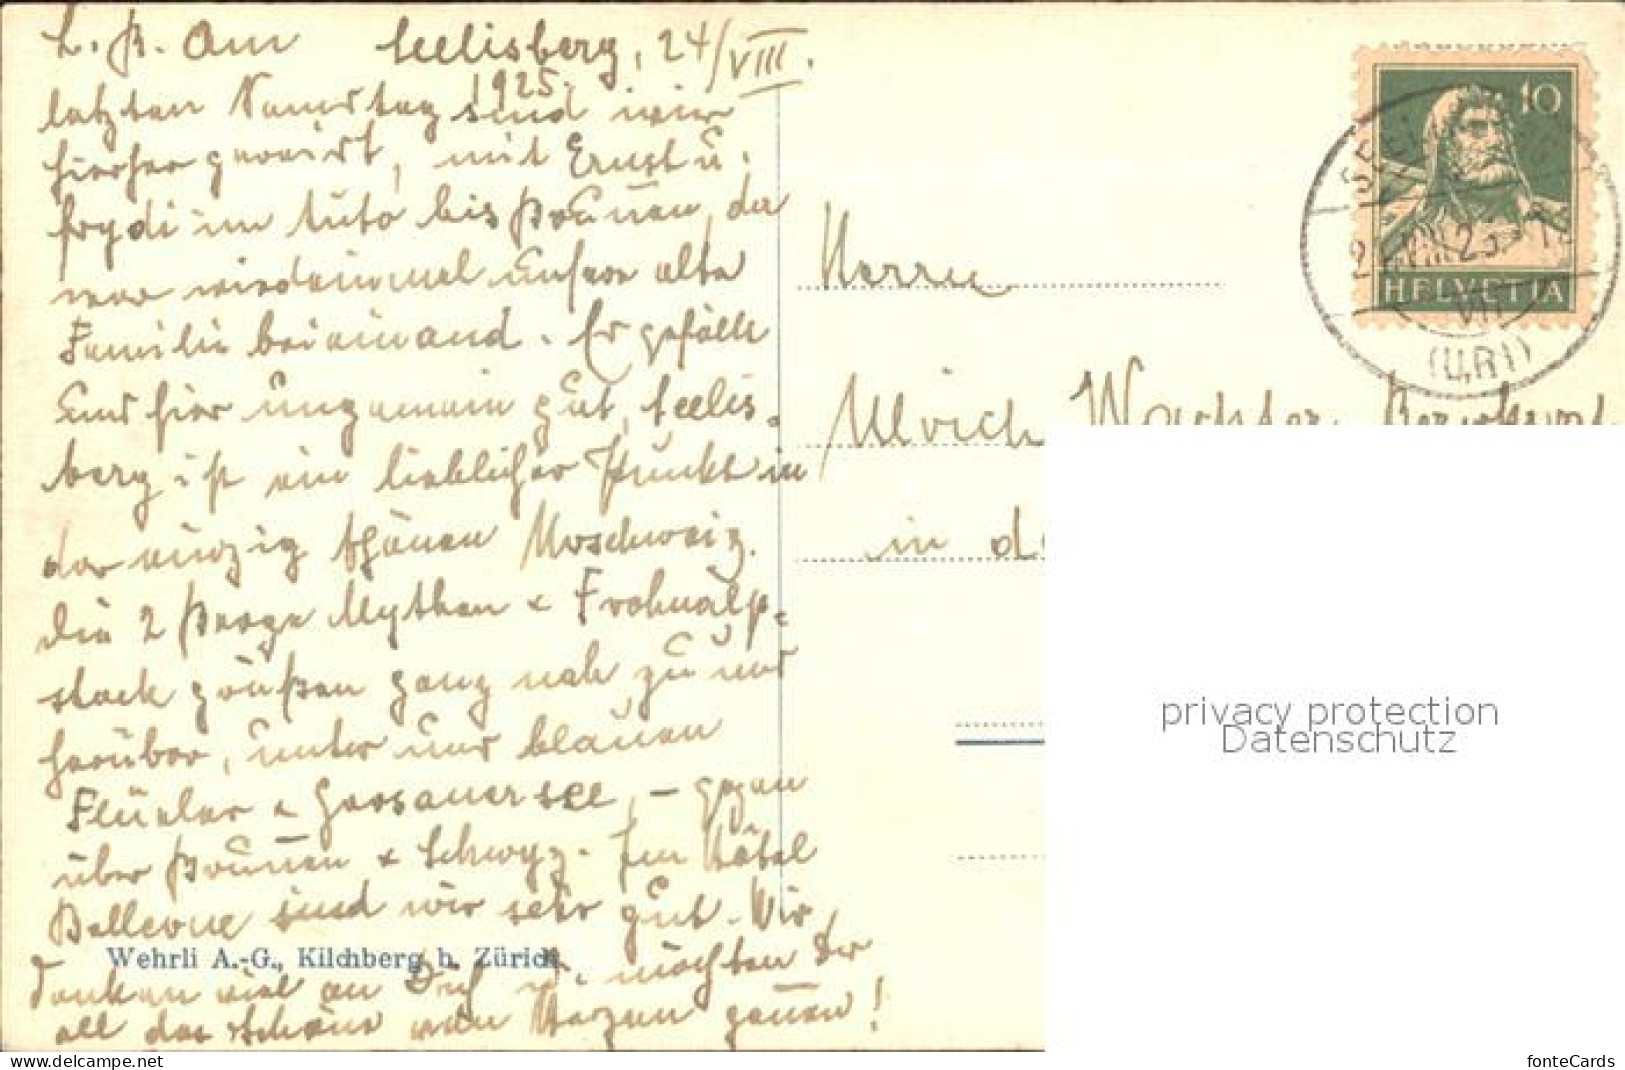 L. B. Am Seelisberg, 24/VIII.
1925.
letzten Samstag sind wir
hierher gereist, mit Ernst u.
Frydi im Auto bis Brunnen, da
war wiedereinmal unsere alte
Familie beieinand. Es gefällt
uns hier ungemein gut, Seelis-
berg ist ein lieblicher Punkt in
der einzig schönen Urschweiz.
Die 2 Berge Mythen & Frohnalp-
stock grüßen ganz nah zu uns
herüber, unter uns blauen
Flüeler & Gersauersee, – gegen
über Brunnen & Schwyz. Im Hôtel
Bellevue sind wir sehr gut. Wir
denken viel an Dich u. möchten Dir
all das Schöne von Herzen gönnen!
Wehrli A.-G., Kilchberg b. Zürich
Herrn
Ulrich Wachter
in
10
HELVETIA
VIII 25
(URI)
privacy protection
Datenschutz
https://www.delcampe.net
fonteCards